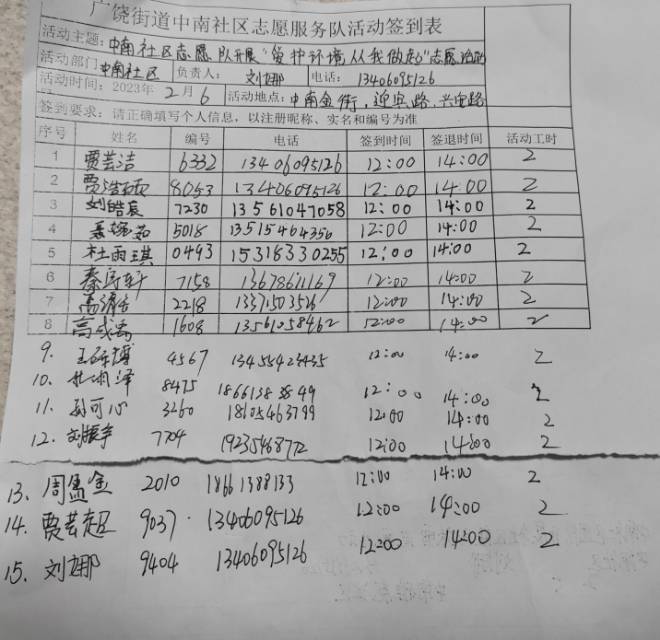 广饶街道中南社区志愿服务队活动签到表
活动主题:中南社区志愿队开展"爱护环境从我做起"志愿活动
活动部门 中南社区 负责人: 刘娜 电话: 13406095126
活动时间: 2023年2月6 活动地点: 中南金街,迎宾路,兴安路
签到要求:请正确填写个人信息,以注册昵称、实名和编号为准
序号 姓名 编号 电话 签到时间 签退时间 活动工时
1 贾芸洁 6332 13406095126 12:00 14:00 2
2 贾浩 8053 13406095126 12:00 14:00 2
3 刘皓宸 7230 13561047058 12:00 14:00 2
4 5018 13515464356 12:00 14:00 2
5 杜雨琪 0493 15318330255 12:00 14:00 2
6 秦 轩 7158 13678611169 12:00 14:00 2
7 高 2218 13371503526 12:00 14:00 2
8 高成禹 1608 13561058462 12:00 14:00 2
9. 王 博 4567 12:00 14:00 2
10. 泽 8475 12:00 14:00 2
11. 孙可心 3260 18605463799 12:00 14:00 2
12. 刘振宇 7704 12:00 14:00 2
13. 周孟金 2010 18661388133 12:00 14:00 2
14. 贾芸超 9037 13406095126 12:00 14:00 2
15. 刘娜 9404 13406095126 1200 1400 2